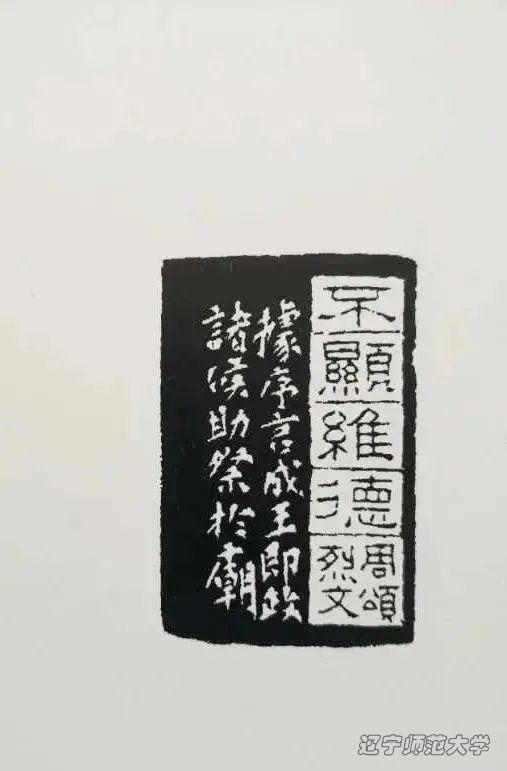 不顯維德
周頌
烈文
據序言成王即政
諸侯助祭於廟
辽宁师范大学